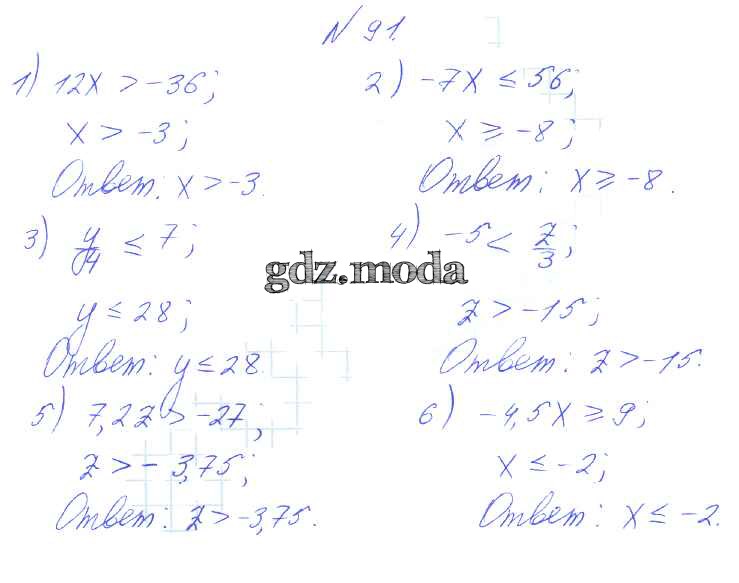 N 91.
1) 12x > -36;
x > -3;
Ответ: x > -3.
2) -7x ≤ 56;
x ≥ -8;
Ответ: x ≥ -8.
3) y/4 ≤ 7;
y ≤ 28;
Ответ: y ≤ 28.
4) -5 < z/3;
z > -15;
Ответ: z > -15.
gdz.moda
5) 7,2z > -27;
z > -3,75;
Ответ: z > -3,75.
6) -4,5x ≥ 9;
x ≤ -2;
Ответ: x ≤ -2.